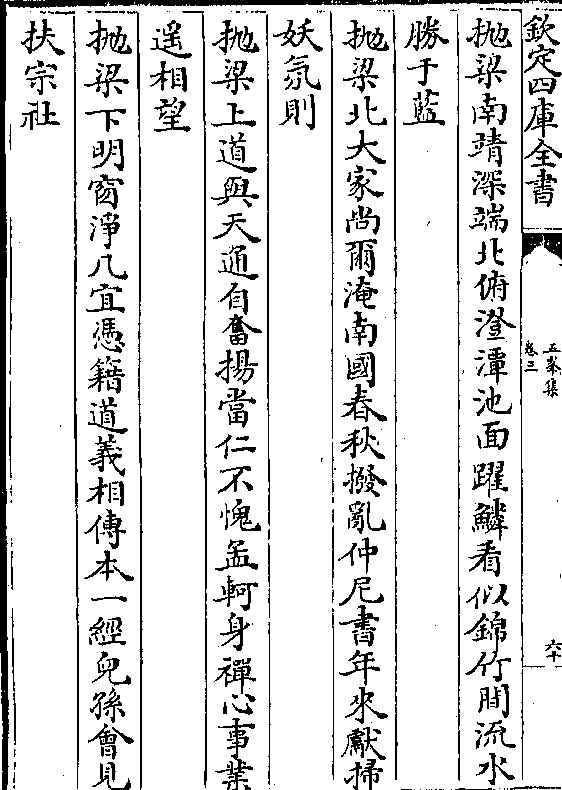 欽定四庫全書
五峯集
卷三
六十
抛梁南靖深端北俯澄潭池面躍鱗看似錦竹間流水
勝于藍
抛梁北大家尚爾淹南國春秋撥亂仲尼書年來獻掃
妖氛則
抛梁上道與天通自奮揚當仁不愧孟軻身禪心事業
遥相望
抛梁下明窗淨几宜憑籍道義相傳本一經兒孫會見
扶宗社